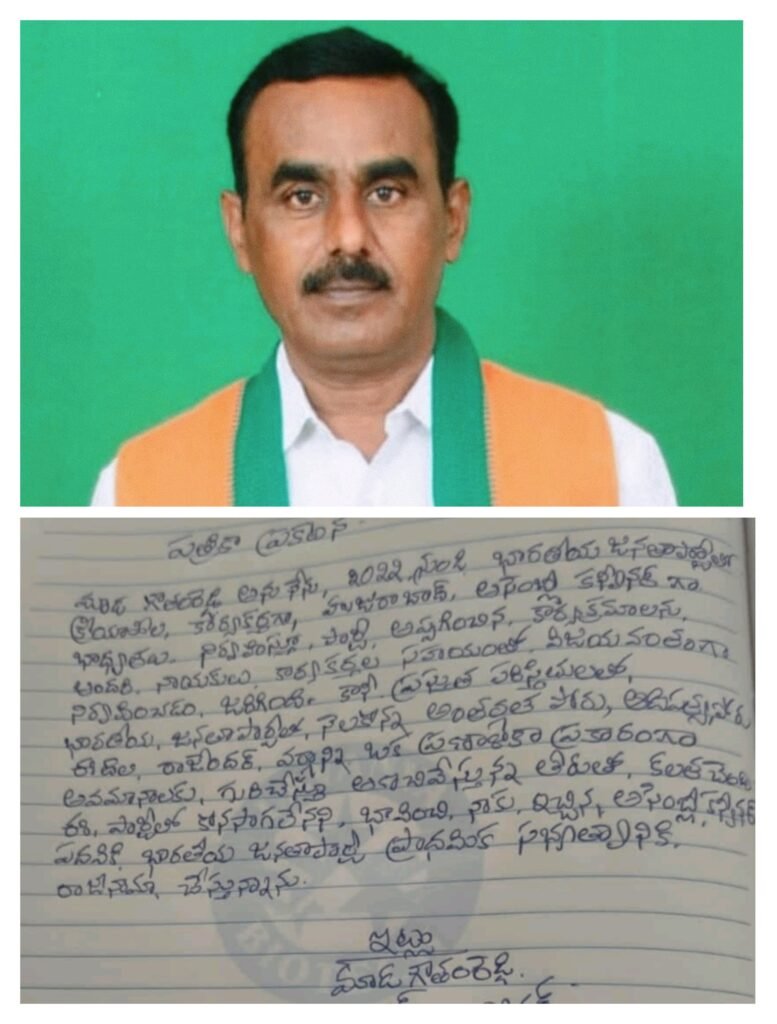 పత్రికా ప్రకటన
మాడ గౌతంరెడ్డి అను నేను, 2022 నుండి భారతీయ జనతాపార్టీలో
క్రీయాశీల, కార్యకర్తగా, హుజురాబాద్, అసెంబ్లీ కన్వీనర్ గా
భాద్యతలు నిర్వహిస్తూ, పార్టీ అప్పగించిన, కార్యక్రమాలను,
అందరి, నాయకులు, కార్యకర్తల సహాయంతో, విజయవంతంగా
నిర్వహించడం, జరిగింది. కానీ ప్రస్తుత పరిస్థితులలో,
భారతీయ, జనతాపార్టీలో, నెలకొన్న అంతర్గత పోరు, ఆదిపత్యపోరు
ఈటెల, రాజేందర్, వర్గాన్ని ఒక ప్రణాళికా ప్రకారంగా
అవమానాలకు, గురిచేస్తూ అణచివేస్తున్న తీరుతో, కలత చెంది
ఈ, పార్టీలో కొనసాగలేనని, భావించి, నాకు, ఇచ్చిన, అసెంబ్లీ, కన్వీనర్
పదవికి, భారతీయ జనతాపార్టీ ప్రాథమిక సభ్యత్వానికి,
రాజీనామా చేస్తున్నాను.
ఇట్లు
మాడ గౌతంరెడ్డి.